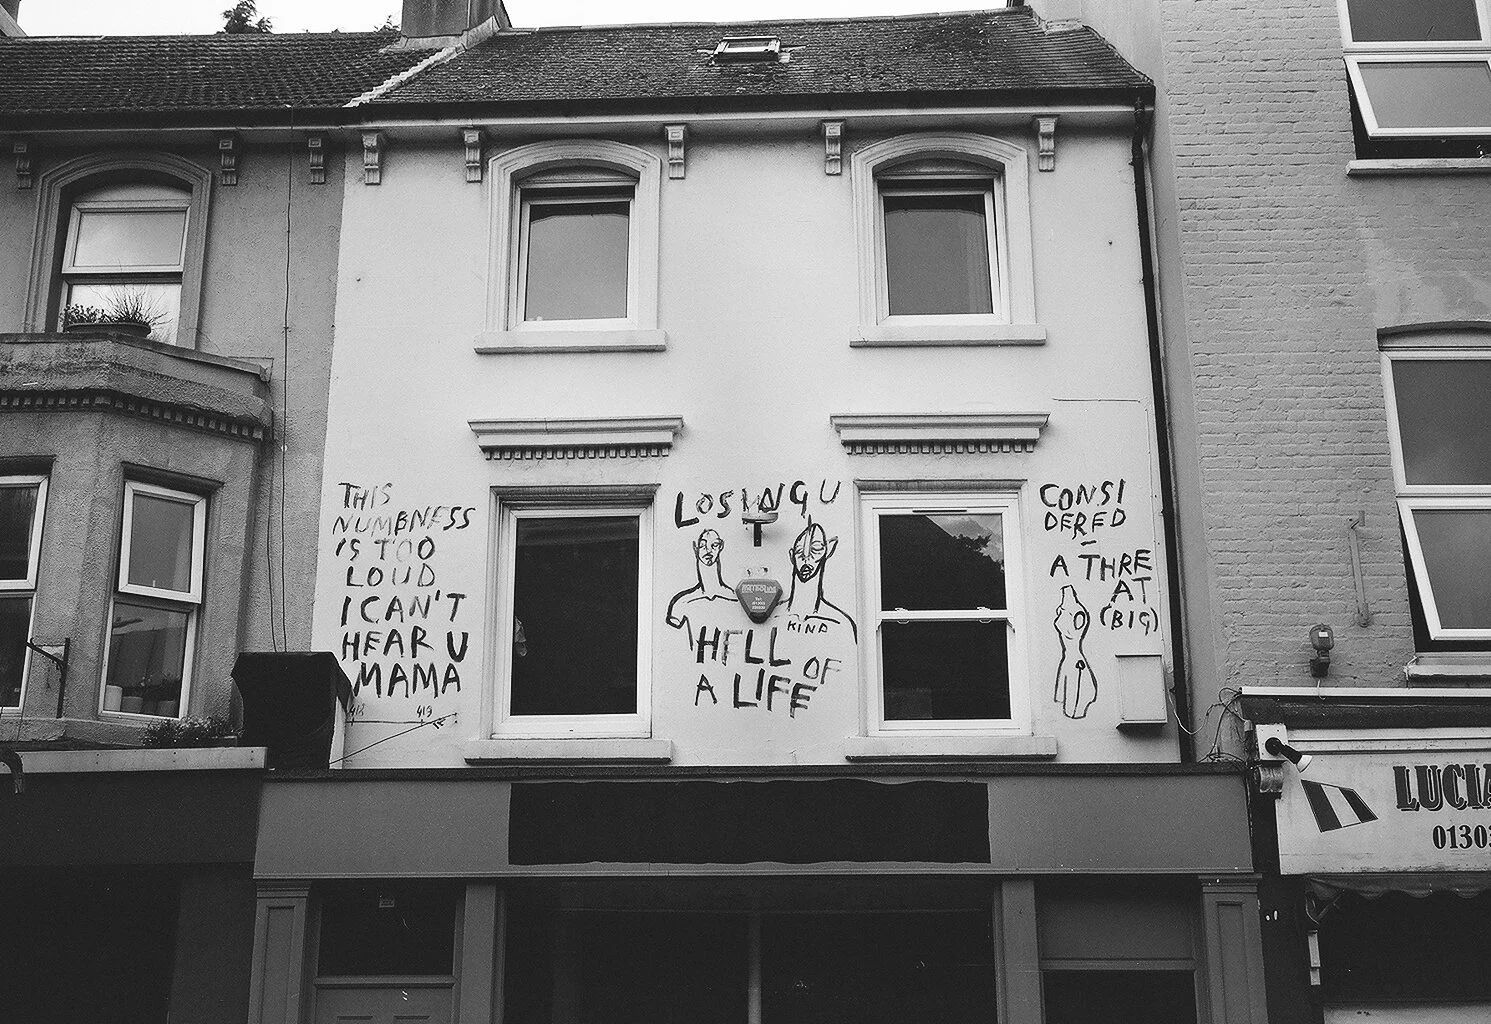 THIS
NUMBNESS
IS TOO
LOUD
I CAN'T
HEAR U
MAMA
418 419
LOSING U
KIND
HELL OF
A LIFE
CONSI
DERED
A THRE
AT
(BIG)
LUCIA
01303